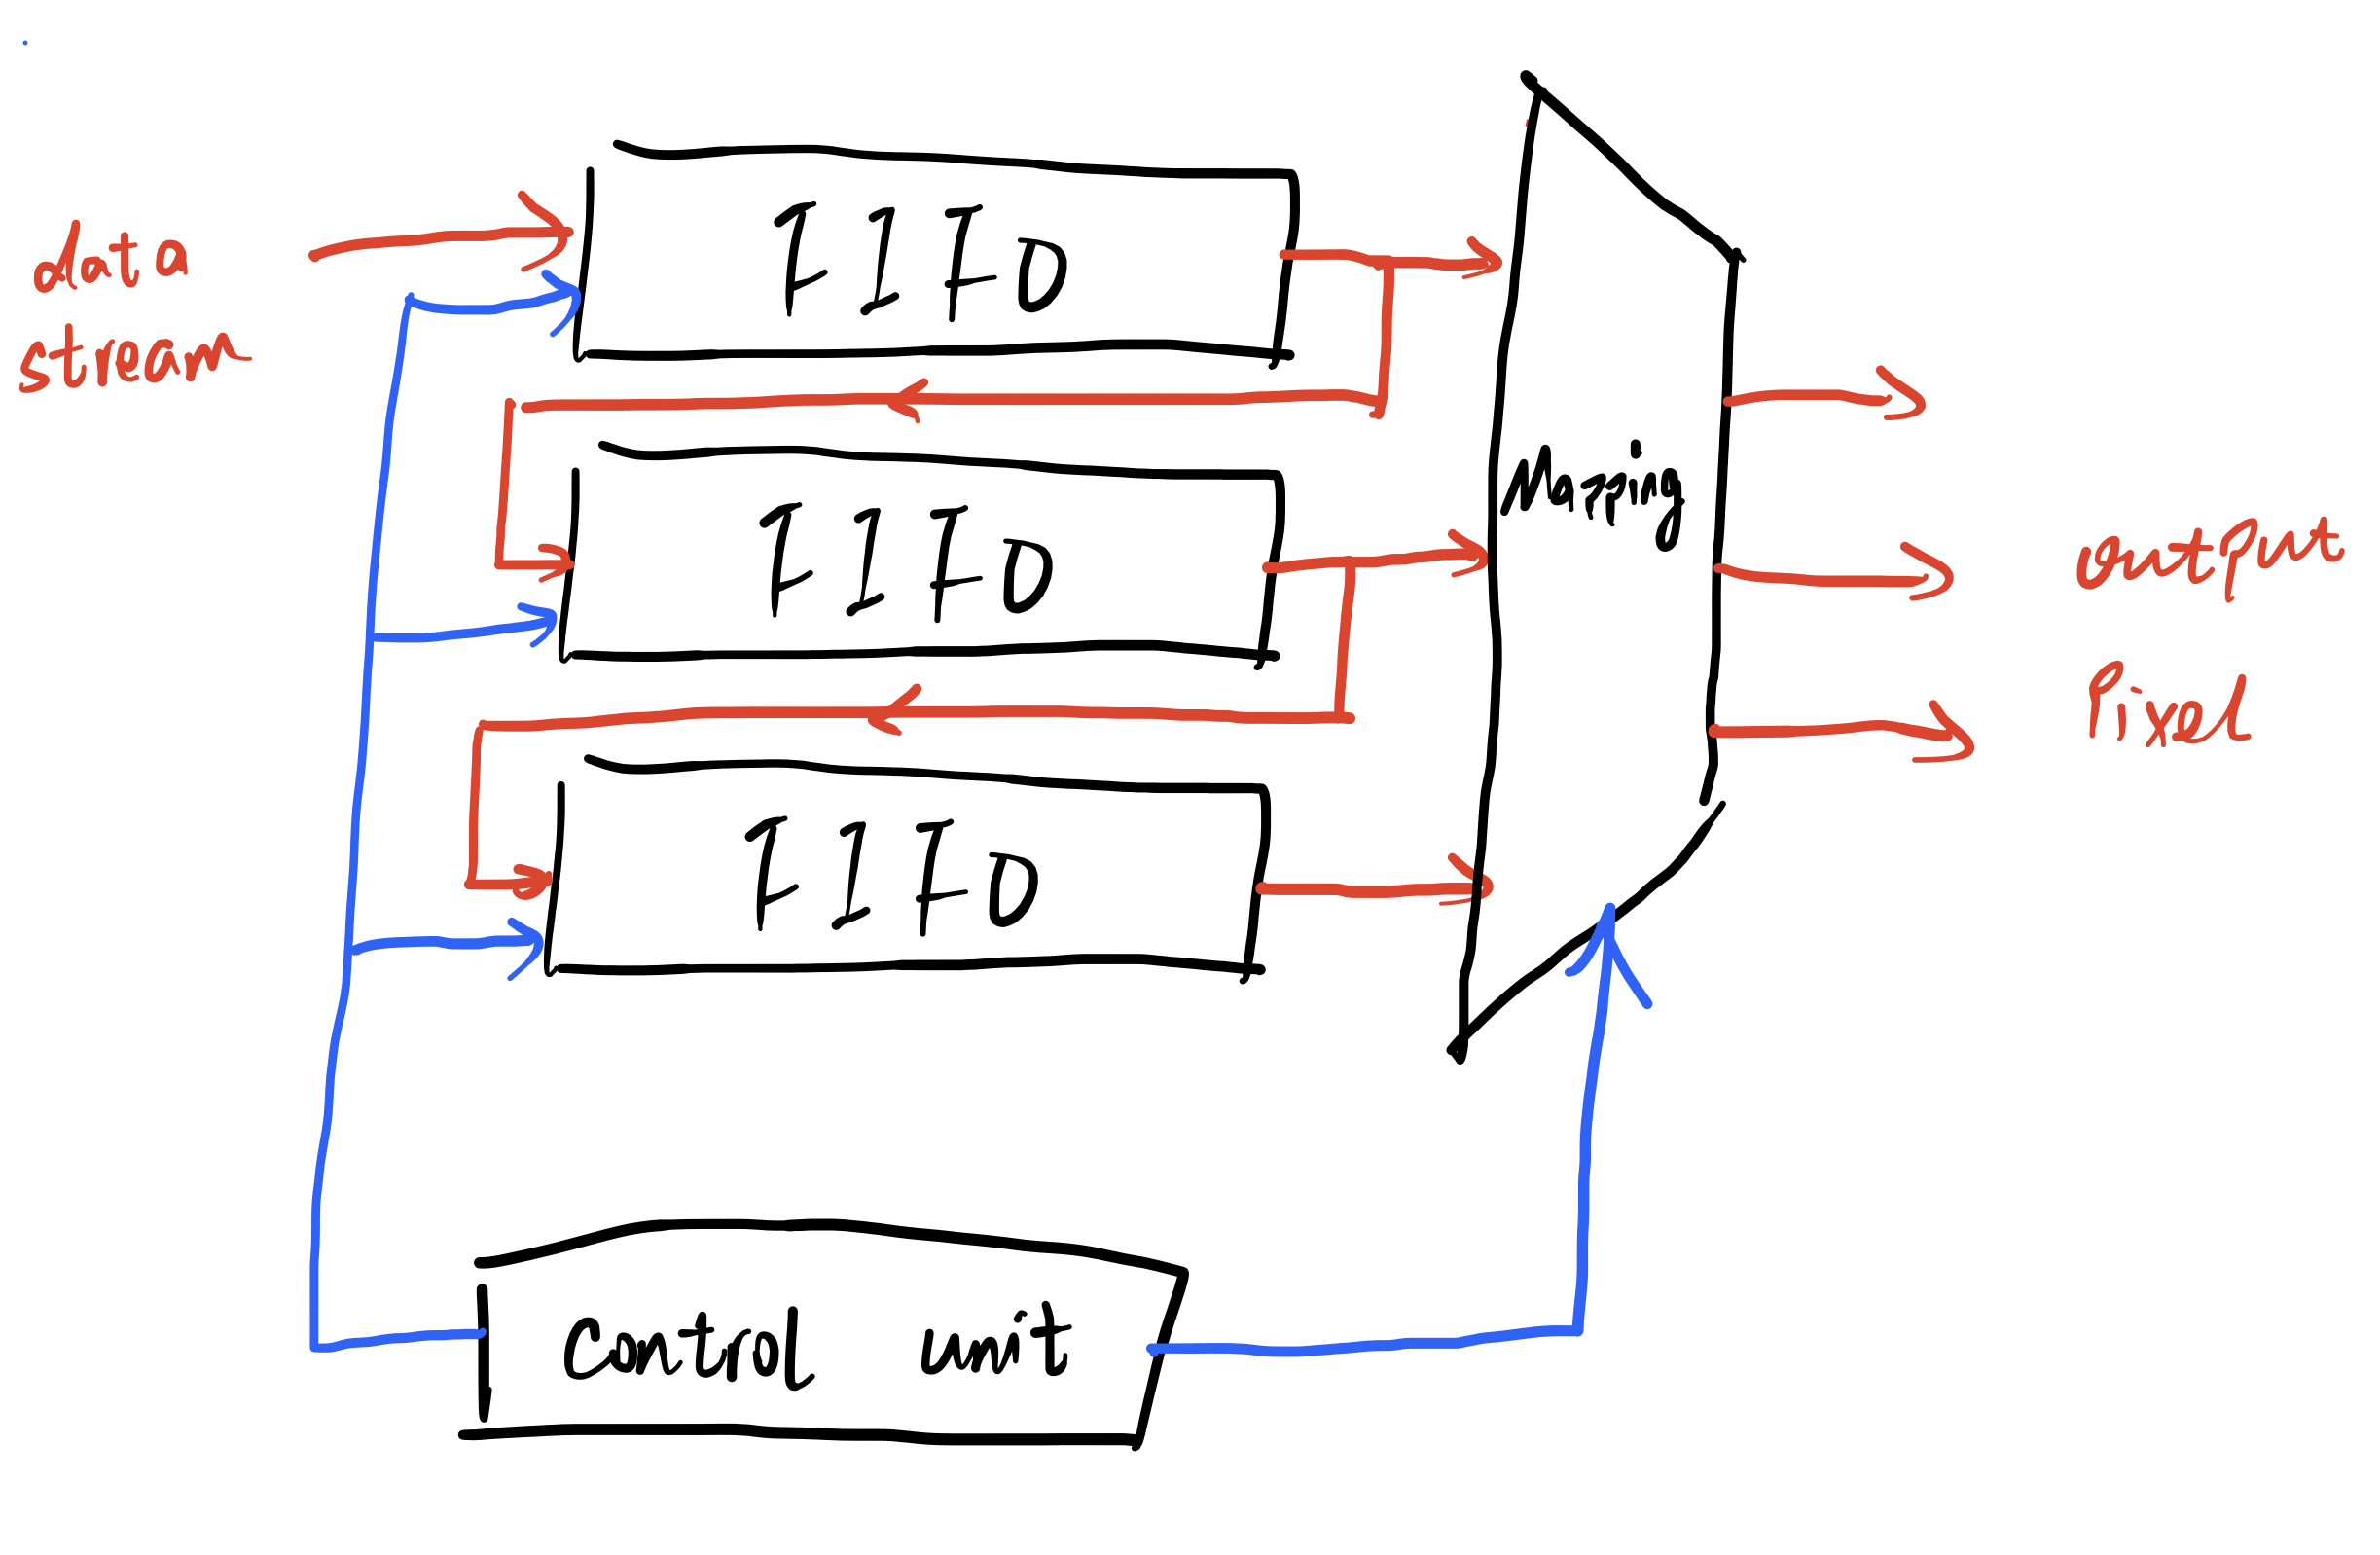 data
stream
FIFO
FIFO
FIFO
Mapping
output
Pixel
Control unit